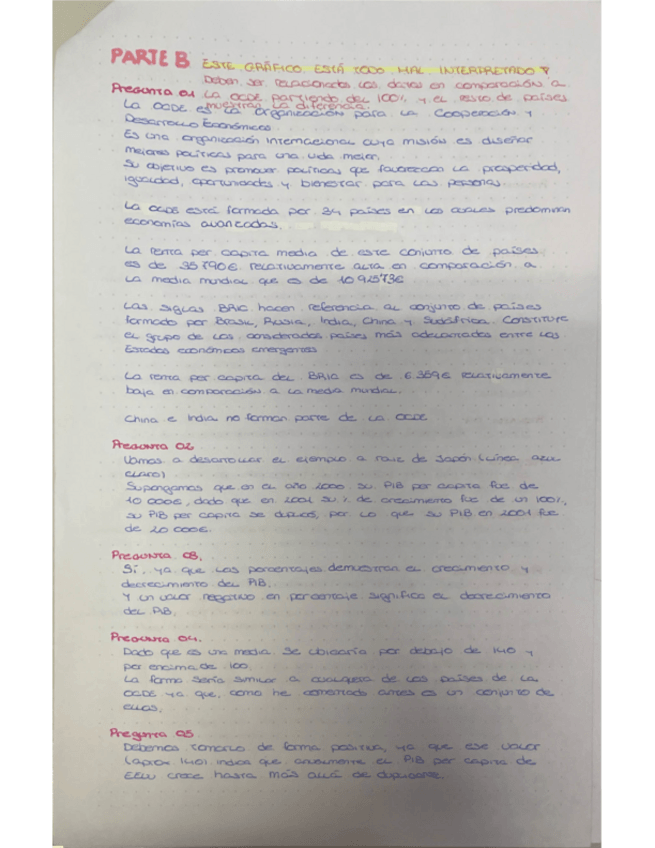 PARTE B ESTE GRÁFICO ESTÁ TODO MAL INTERPRETADO
Deben ser relacionados los datos en comparación a
Pregunta 01 LA OCDE partiendo del 100%, y el resto de países
muestran la diferencia.
La OCDE es la organización para la Cooperación y
Desarrollo Económicos.
Es una organización internacional cuya misión es diseñar
mejores políticas para una vida mejor.
Su objetivo es promover políticas que favorezcan la prosperidad,
igualdad, oportunidades y bienestar para las personas.
La OCDE está formada por 34 países en los cuales predominan
economías avanzadas.
La renta per capita media de este conjunto de países
es de 35790€ relativamente alta en comparación a
la media mundial que es de 10925'73€
Las siglas BRIC hacen referencia al conjunto de países
formado por Brasil, Rusia, India, China y Sudáfrica. Constituye
el grupo de los considerados países más adelantados entre los
Estados económicos emergentes
La renta per capita del BRIC es de 6.389€ relativamente
baja en comparación a la media mundial.
China e India no forman parte de la OCDE
Pregunta 02
Vamos a desarrollar el ejemplo a raíz de Japón (línea azul
claro)
Supongamos que en el año 2000 su PIB per capita fue de
10 000€, dado que en 2001 su % de crecimiento fue de un 100%,
su PIB per capita se duplicó, por lo que su PIB en 2001 fue
de 20 000€.
Pregunta 03.
Sí, ya que los porcentajes demuestran el crecimiento y
decrecimiento del PIB.
Y un valor negativo en porcentaje significa el decrecimiento
del PIB.
Pregunta 04.
Dado que es una media. Se ubicaría por debajo de 140 y
por encima de 100.
La forma sería similar a cualquiera de los países de la
OCDE ya que, como he comentado antes es un conjunto de
ellos.
Pregunta 05
Debemos tomarlo de forma positiva, ya que ese valor
(aprox 140) indica que anualmente el PIB per capita de
EEUU crece hasta más allá de duplicarse